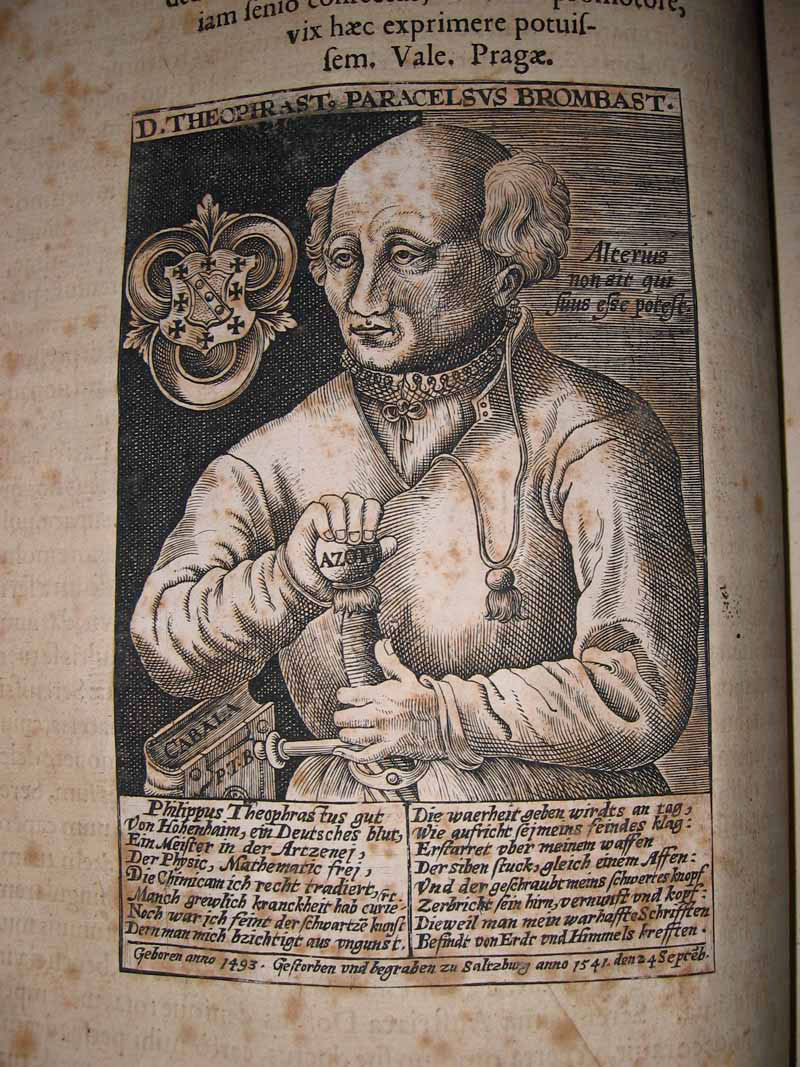 iam senio
vix hæc exprimere potuis-
sem. Vale. Pragæ.
D. THEOPHRAST. PARACELSVS BROMBAST.
Alterius
non sit qui
suus esse potest.
AZOT
CABALA
P.T.B
Philippus Theophrastus gut
Von Hohenhaim, ein Deutsches blut,
Ein Meister in der Artzenei,
Der Physic, Mathematic frei,
Die Chimicam ich recht tradiert,
Manch grewlich kranckheit hab curiert.
Noch war ich feint der schwartzē kunst
Dern man mich bzichtigt aus vngunst.
Die waerheit geben wirdts an tag,
Wie aufricht sej meins feindes klag:
Erstarret vber meinem waffen
Der siben stuck, gleich einem Affen:
Vnd der geschraubt meins schwertes knopf
Zerbricht sein hirn, vernunft vnd kopf:
Dieweil man mein warhaffte Schrifften
Befindt von Erdt vnd Himmels krefften.
Geboren anno 1493. Gestorben vnd begraben zu Saltzburg anno 1541. den 24 Septēb.